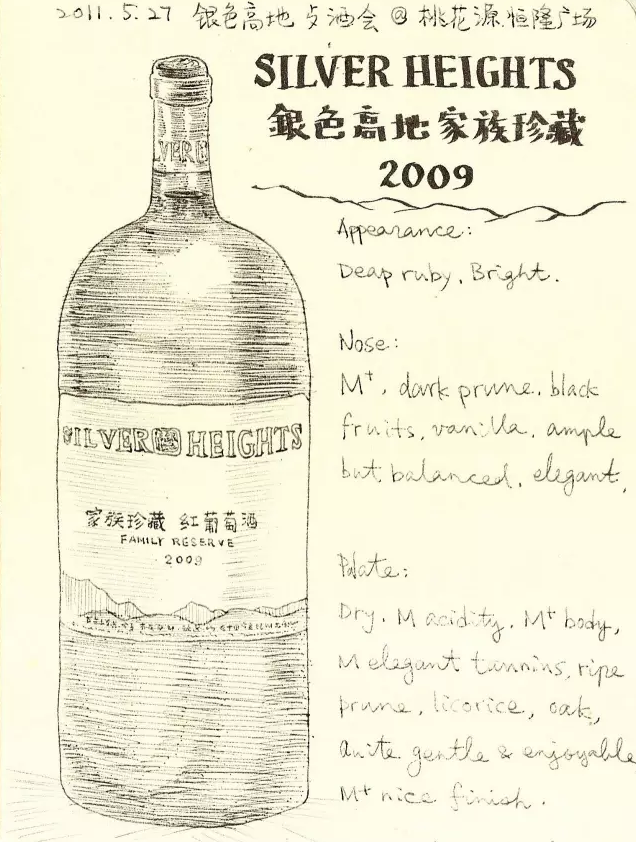 2011.5.27 银色高地 品酒会 @ 桃花源.恒隆广场
SILVER HEIGHTS
銀色高地家族珍藏
2009
Appearance:
Deap ruby. Bright.
Nose:
M⁺, dark prune, black
fruits, vanilla, ample
but balanced, elegant,
Palate:
Dry. M acidity. M⁺ body,
M elegant tannins, ripe
prune, licorice, oak,
Quite gentle & enjoyable
M⁺ nice finish.
VERE
SILVER HEIGHTS
家族珍藏 红葡萄酒
FAMILY RESERVE
2009